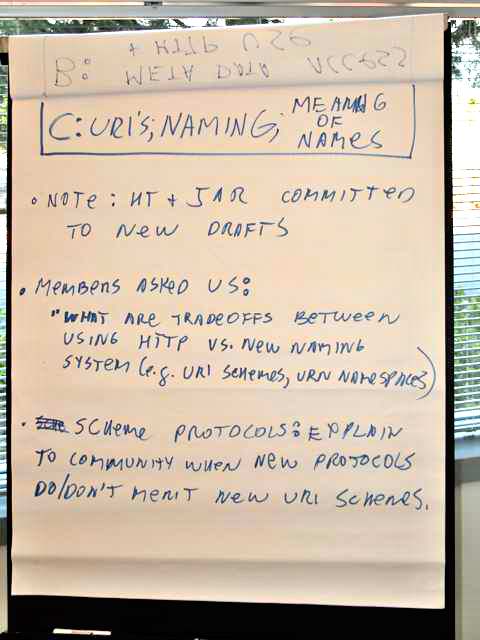 + HTTP USE
B: META DATA ACCESS
C: URI'S; NAMING; MEANING
OF
NAMES
• NOTE: HT + JAR COMMITTED
TO NEW DRAFTS
• MEMBERS ASKED US:
"WHAT ARE TRADEOFFS BETWEEN
USING HTTP VS. NEW NAMING
SYSTEM (e.g. URI SCHEMES, URN NAMESPACES)
• SCHEME PROTOCOLS: EXPLAIN
TO COMMUNITY WHEN NEW PROTOCOLS
DO/DON'T MERIT NEW URI SCHEMES.